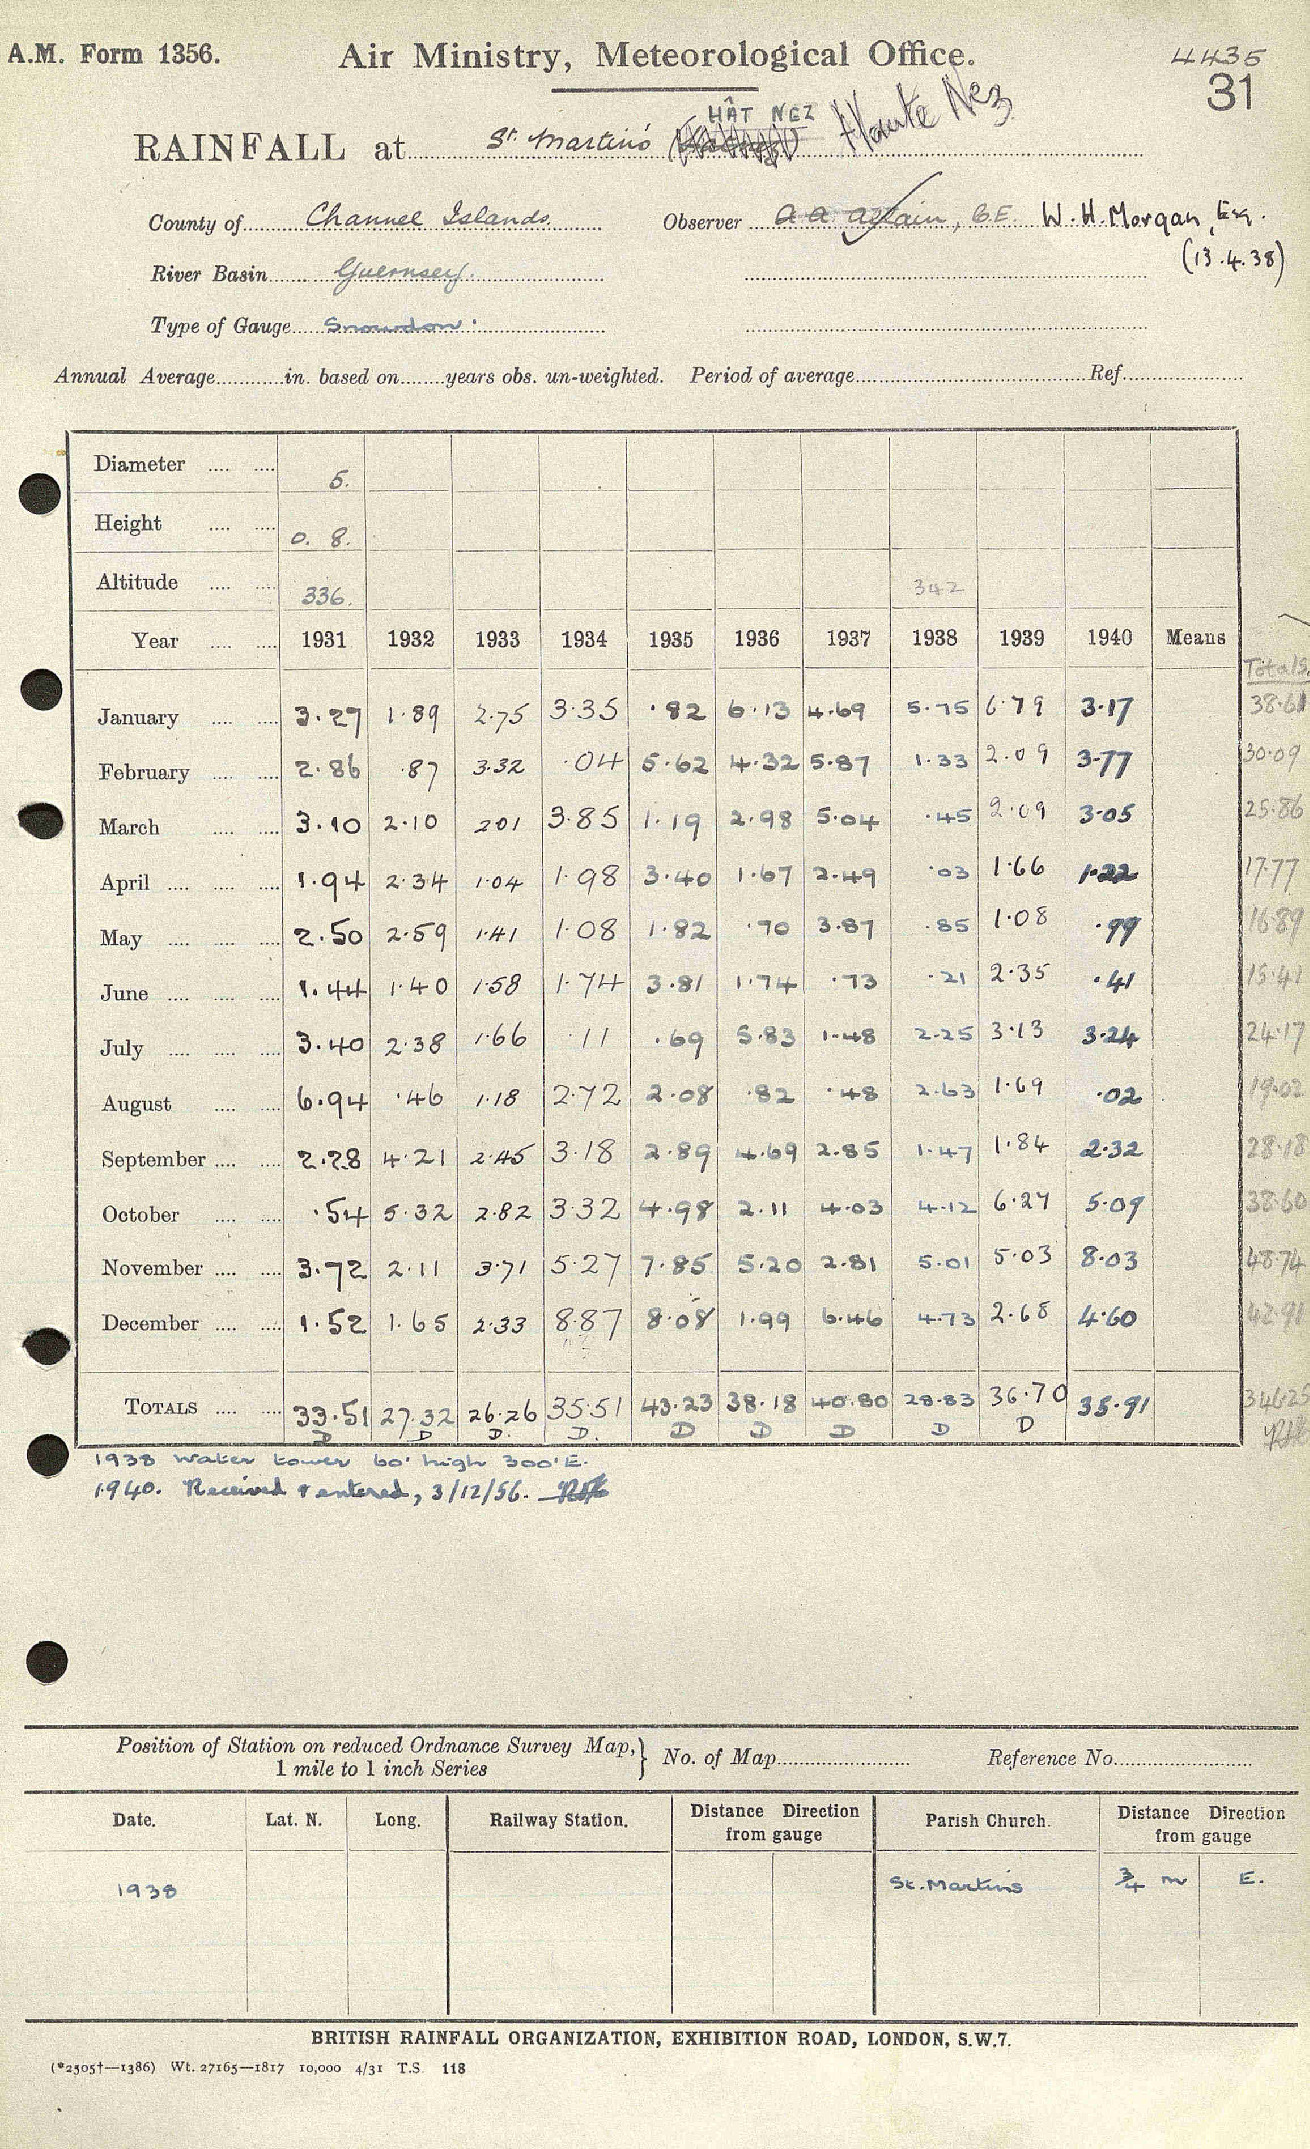 A.M. Form 1356.
Air Ministry, Meteorological Office.
4435
31
HÂT NEZ
RAINFALL at St. Martins Haute Nez
County of Channel Islands. Observer W. H. Morgan, Esq.
(13.4.38)
River Basin Guernsey.
Type of Gauge Snowdon.
Annual Average in. based on years obs. un-weighted. Period of average Ref.
Diameter 5.
Height 0. 8.
Altitude 336. 342
Year 1931 1932 1933 1934 1935 1936 1937 1938 1939 1940 Means
Totals.
January 3.27 1.89 2.75 3.35 .82 6.13 4.69 5.75 6.79 3.17 38.61
February 2.86 .87 3.32 .04 5.62 4.32 5.87 1.33 2.09 3.77 30.09
March 3.10 2.10 2.01 3.85 1.19 2.98 5.04 .45 2.09 3.05 25.86
April 1.94 2.34 1.04 1.98 3.40 1.67 2.49 .03 1.66 1.22 17.77
May 2.50 2.59 1.41 1.08 1.82 .70 3.87 .85 1.08 .99 16.89
June 1.44 1.40 1.58 1.74 3.81 1.74 .73 .21 2.35 .41 15.41
July 3.40 2.38 1.66 .11 .69 5.83 1.48 2.25 3.13 3.24 24.17
August 6.94 .46 1.18 2.72 2.08 .82 .48 2.63 1.69 .02 19.02
September 2.28 4.21 2.45 3.18 2.89 4.69 2.85 1.47 1.84 2.32 28.18
October .54 5.32 2.82 3.32 4.98 2.11 4.03 4.12 6.27 5.09 38.60
November 3.72 2.11 3.71 5.27 7.85 5.20 2.81 5.01 5.03 8.03 48.74
December 1.52 1.65 2.33 8.87 8.08 1.99 6.46 4.73 2.68 4.60 42.91
TOTALS 33.51 27.32 26.26 35.51 43.23 38.18 40.80 28.83 36.70 35.91 346.25
D D D. D. D D D D D
1938 Water tower 60' high 300' E.
1940. Received & entered, 3/12/56.
Position of Station on reduced Ordnance Survey Map,
1 mile to 1 inch Series } No. of Map Reference No.
Date. Lat. N. Long. Railway Station. Distance Direction from gauge Parish Church. Distance Direction from gauge
1938 St. Martins 3/4 m E.
BRITISH RAINFALL ORGANIZATION, EXHIBITION ROAD, LONDON, S.W.7.
(*2505†—1386) Wt. 27165—1817 10,000 4/31 T.S. 118